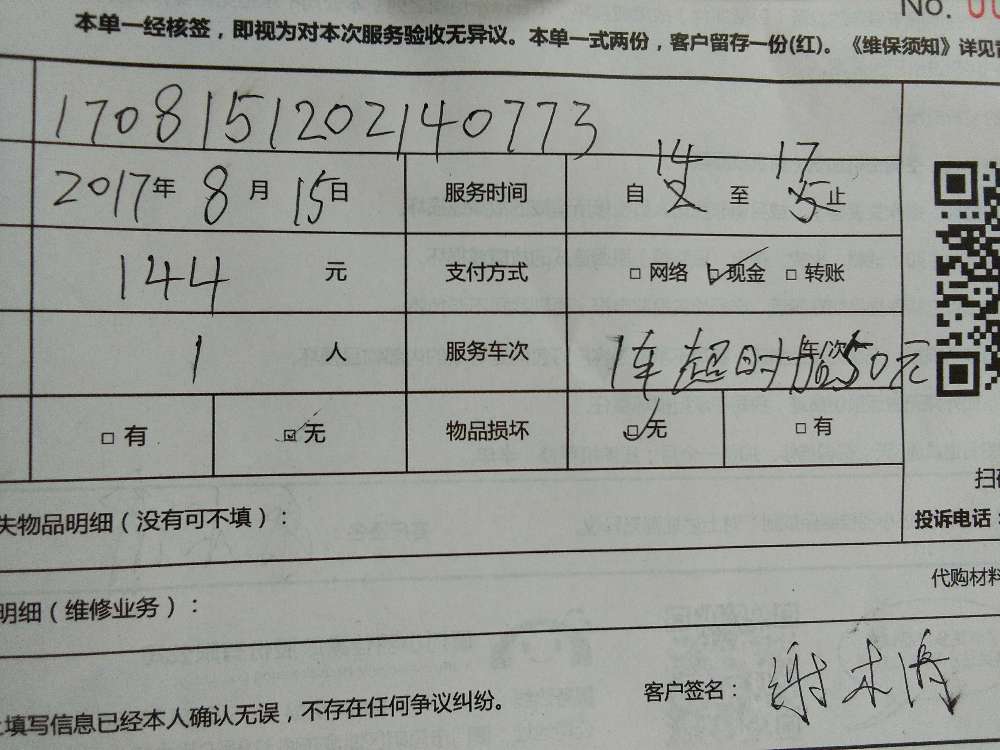 No. 00
本单一经核签，即视为对本次服务验收无异议。本单一式两份，客户留存一份(红)。《维保须知》详见
170815120214 0773
2017年 8月 15日 服务时间 自 14 至 17 止
144 元 支付方式 □ 网络 ☑ 现金 □ 转账
1 人 服务车次 1车超时加50元 车/次
□ 有 ☑ 无 物品损坏 ☑ 无 □ 有
扫
失物品明细（没有可不填）：
投诉电话：
代购材料
明细（维修业务）：
客户签名：谢木
上填写信息已经本人确认无误，不存在任何争议纠纷。